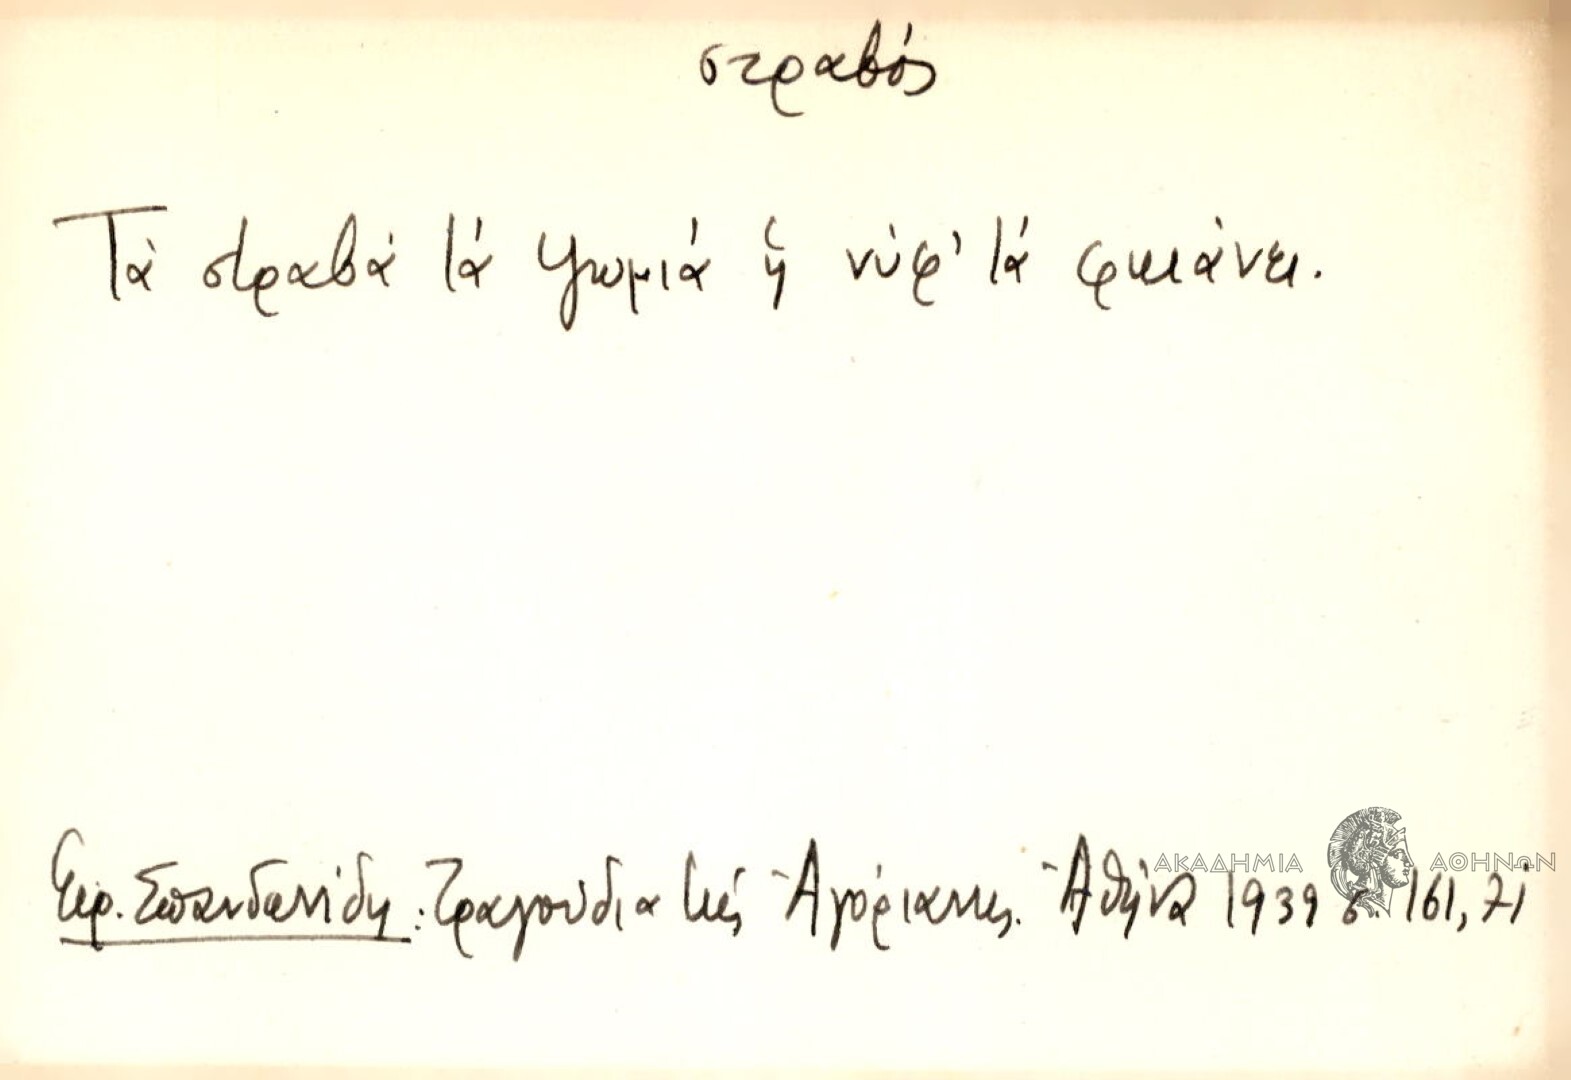 στραβός
Τὰ στραβὰ τά ψωμιά ἡ νύφ' τά φκιάνει.
Εἰρ. Σπανδωνίδη: Τραγούδια τῆς Ἀγόριανης. Ἀθήνα 1939 σ. 161, 71
ΑΚΑΔΗΜΙΑ ΑΘΗΝΩΝ